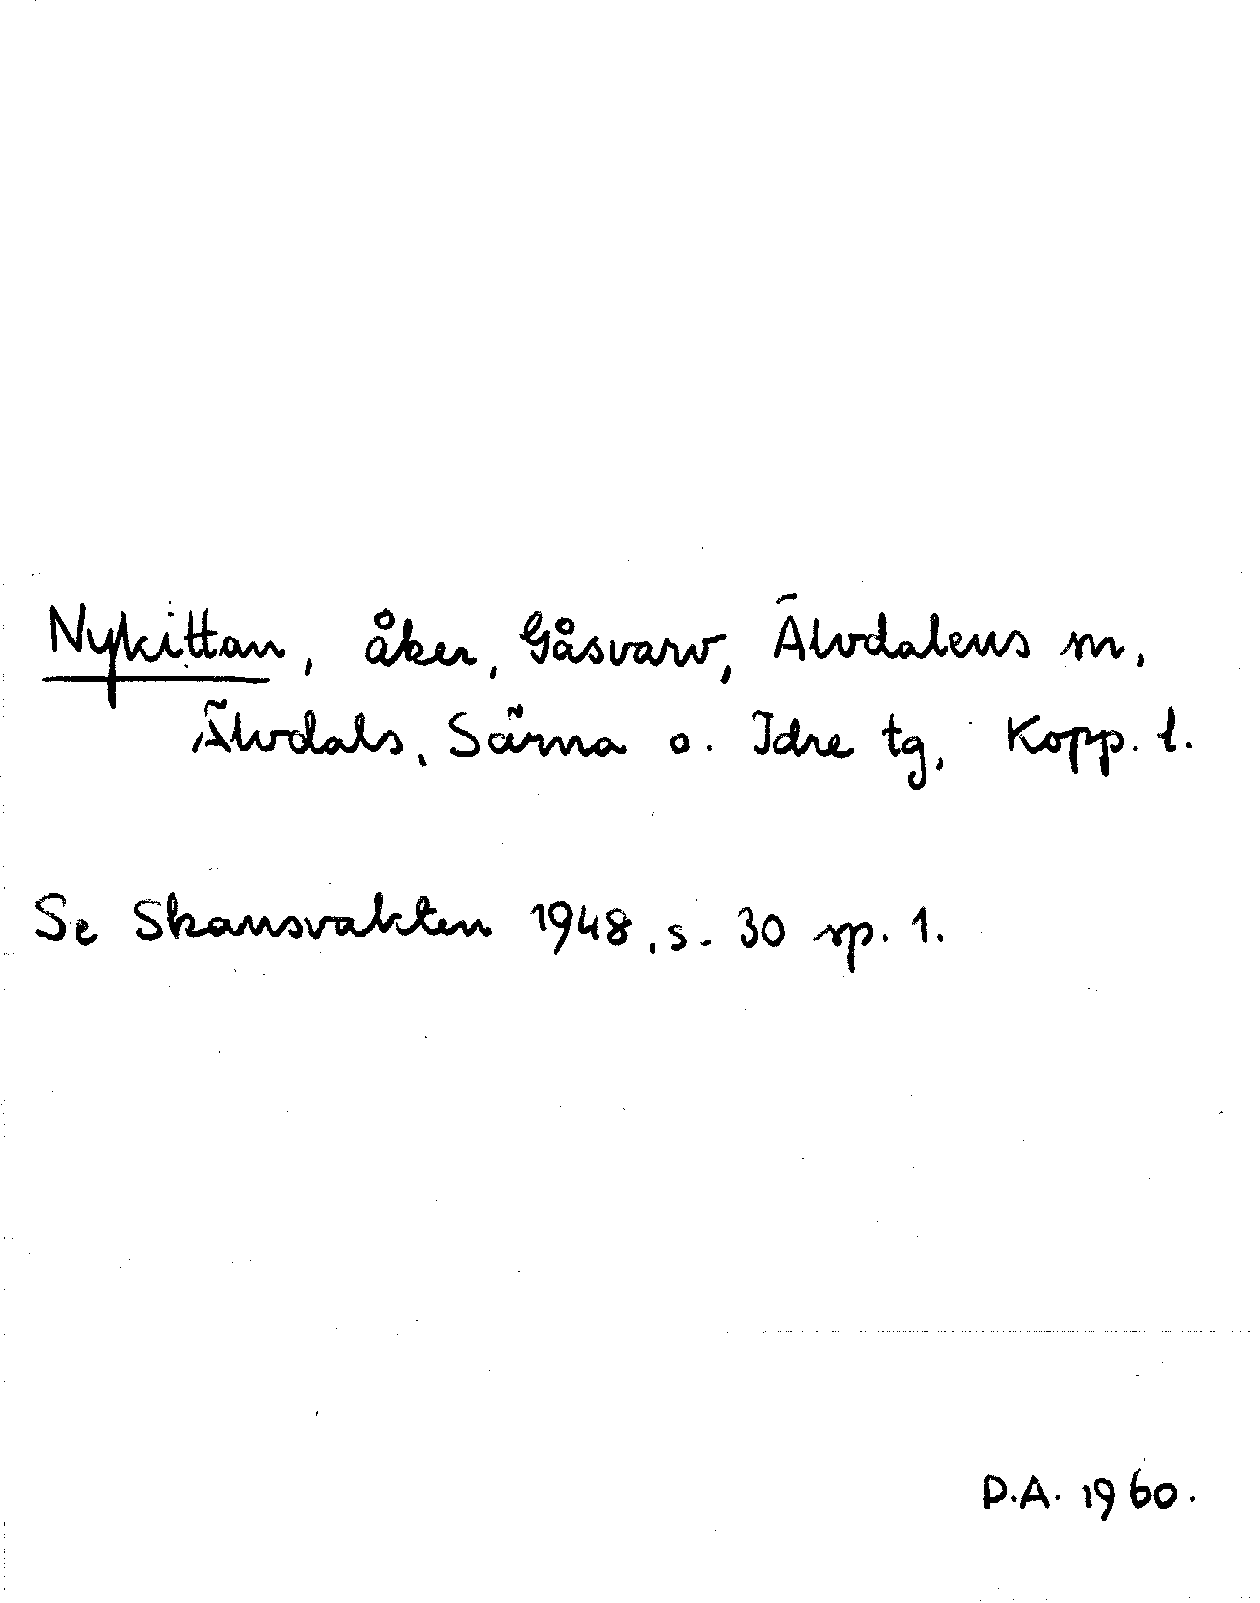 Nykittan, åker, Gåsvarv, Älvdalens sn,
Älvdals, Särna o. Idre tg, Kopp. l.
Se Skansvakten 1948, s. 30 sp. 1.
D.A. 1960.